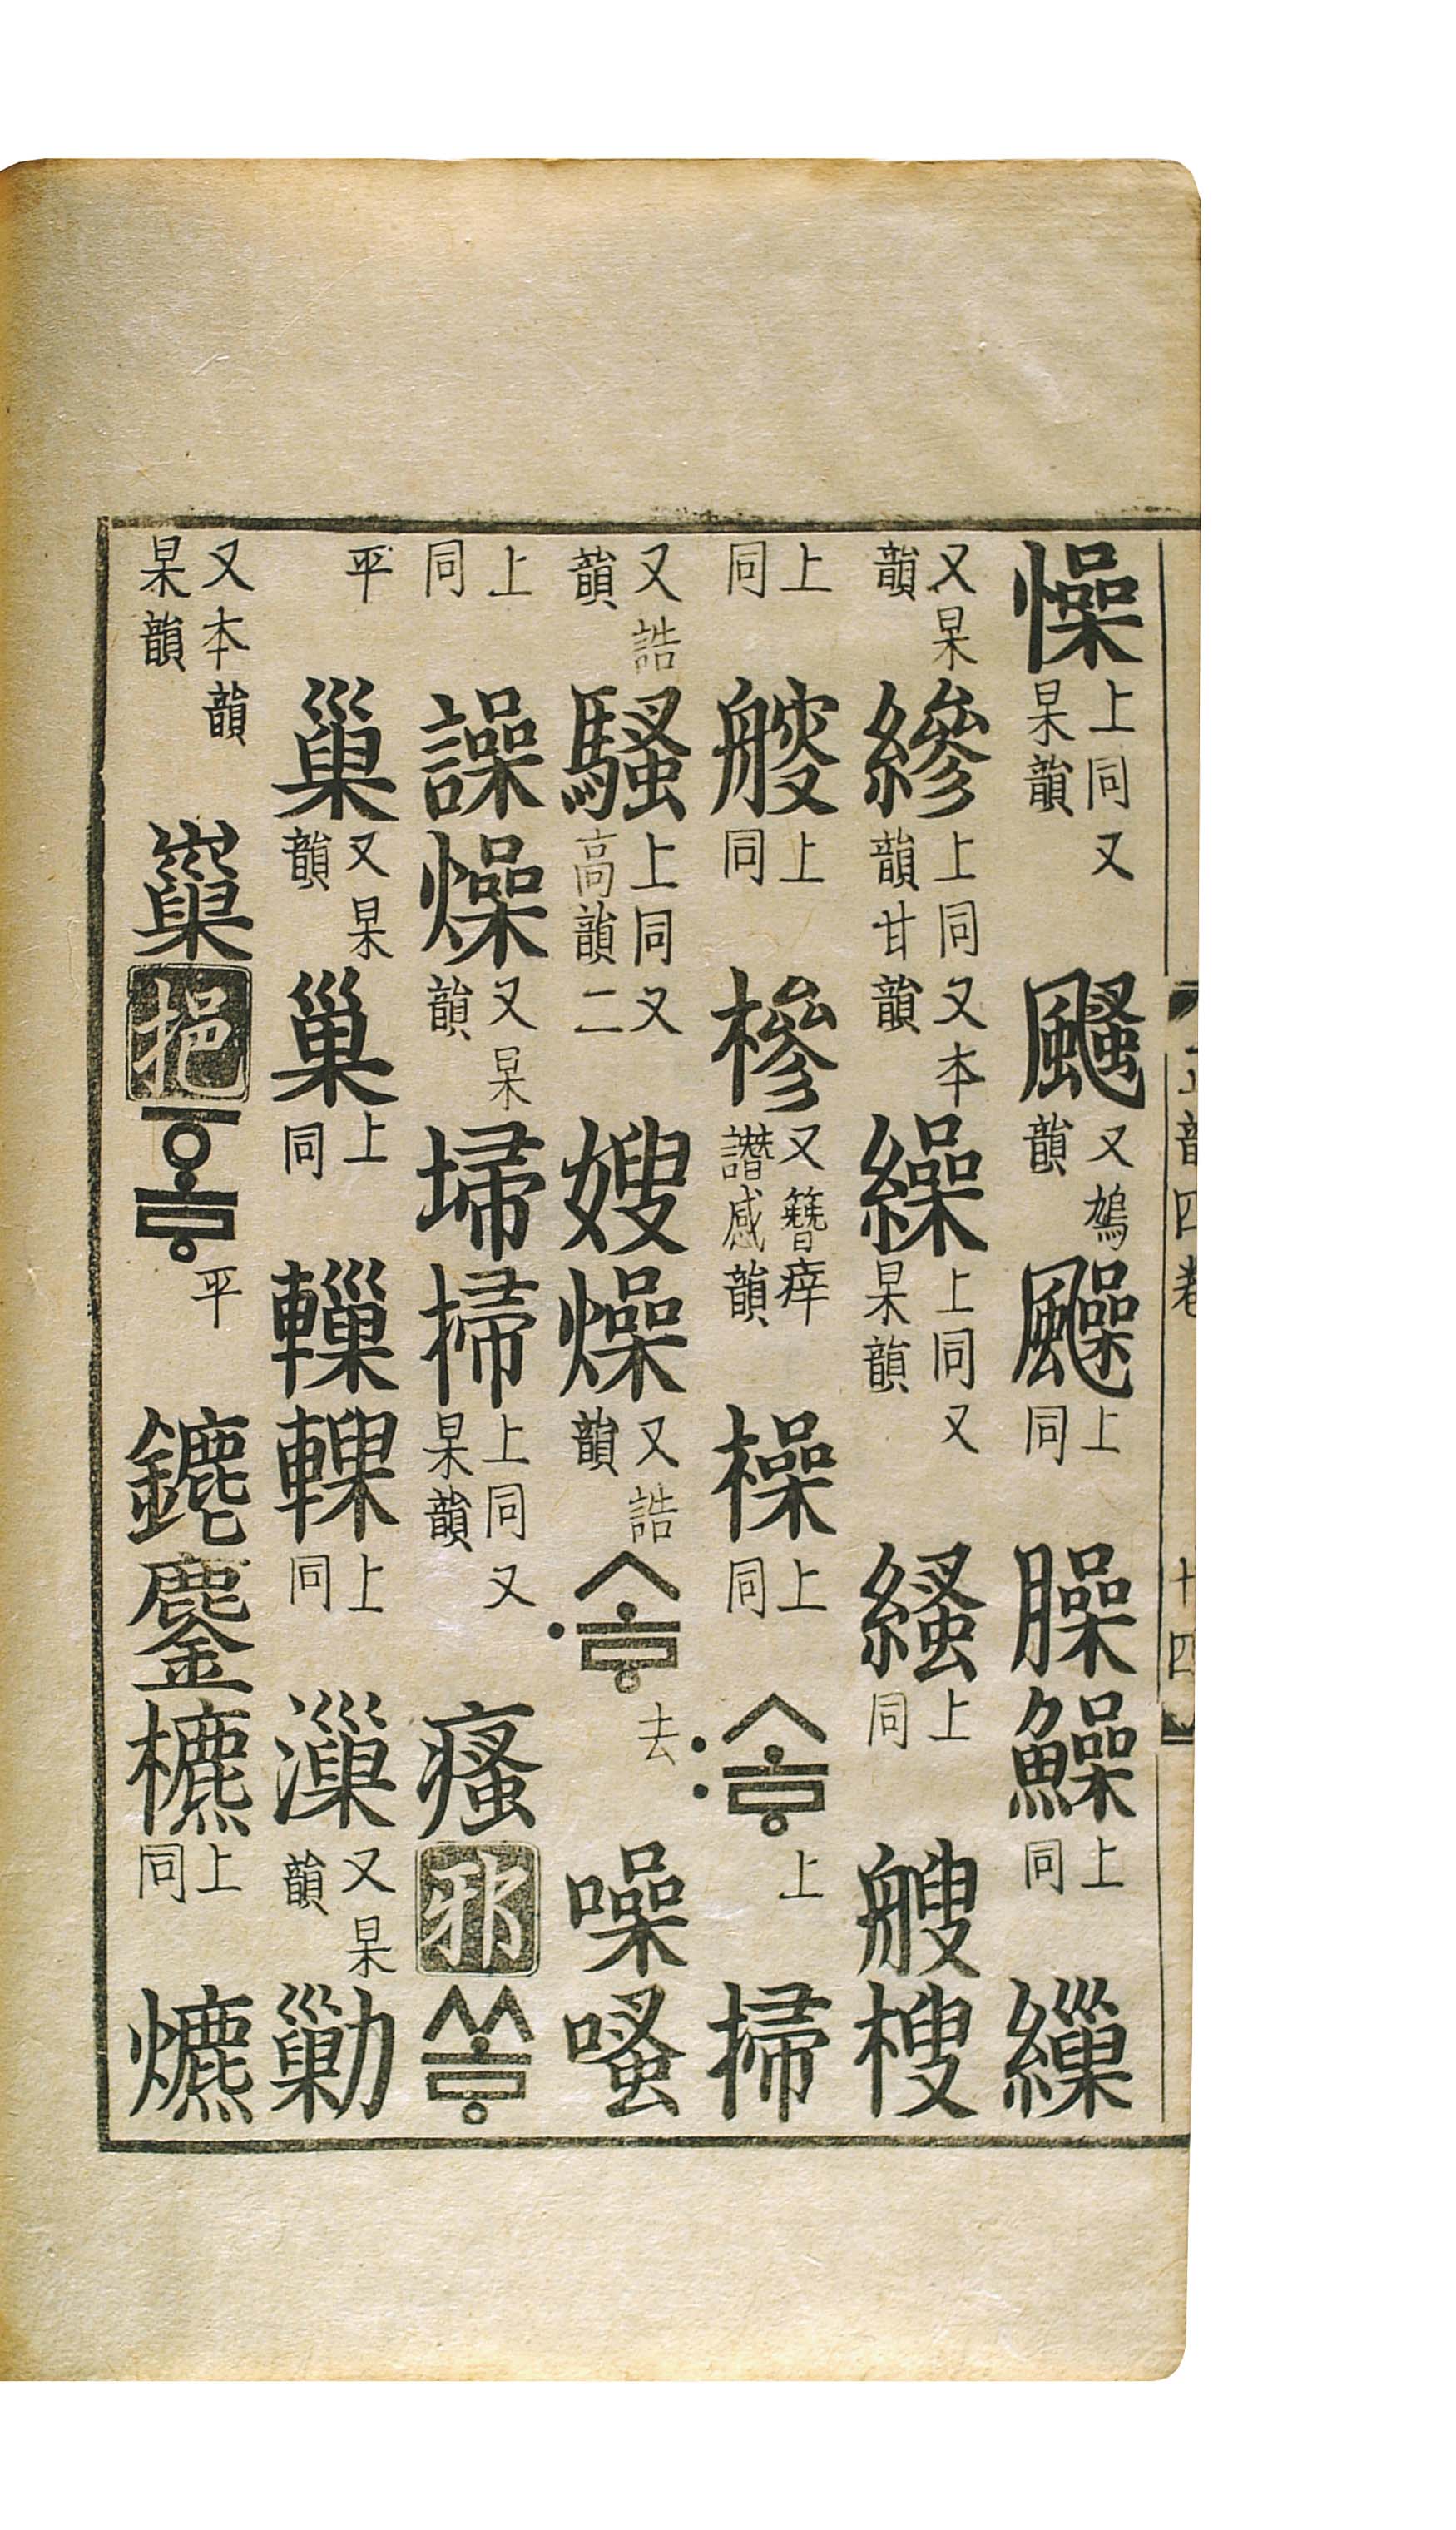 懆 上同又杲韻 颾 又鳩韻 上同 臊 鱢 上同 繅
又杲韻 縿 上同又本韻甘韻 繰 上同又杲韻 上同 艘 㮴
上同 上同 槮 又簪痒譖感韻 橾 上同 〯소ᇢ 上 掃
又誥韻 騷 上同又高韻二 嫂 燥 又誥韻 〮소ᇢ 去 噪 㗜
上同 譟 燥 又杲韻 埽 掃 上同又杲韻 瘙 邪 쏘ᇢ
平 巢 又杲韻 巢 上同 轈 上同 漅 又杲韻 勦
又本韻杲韻 挹 ᅙᅩᇢ 平 鏕 鏖 上同
四卷 十四